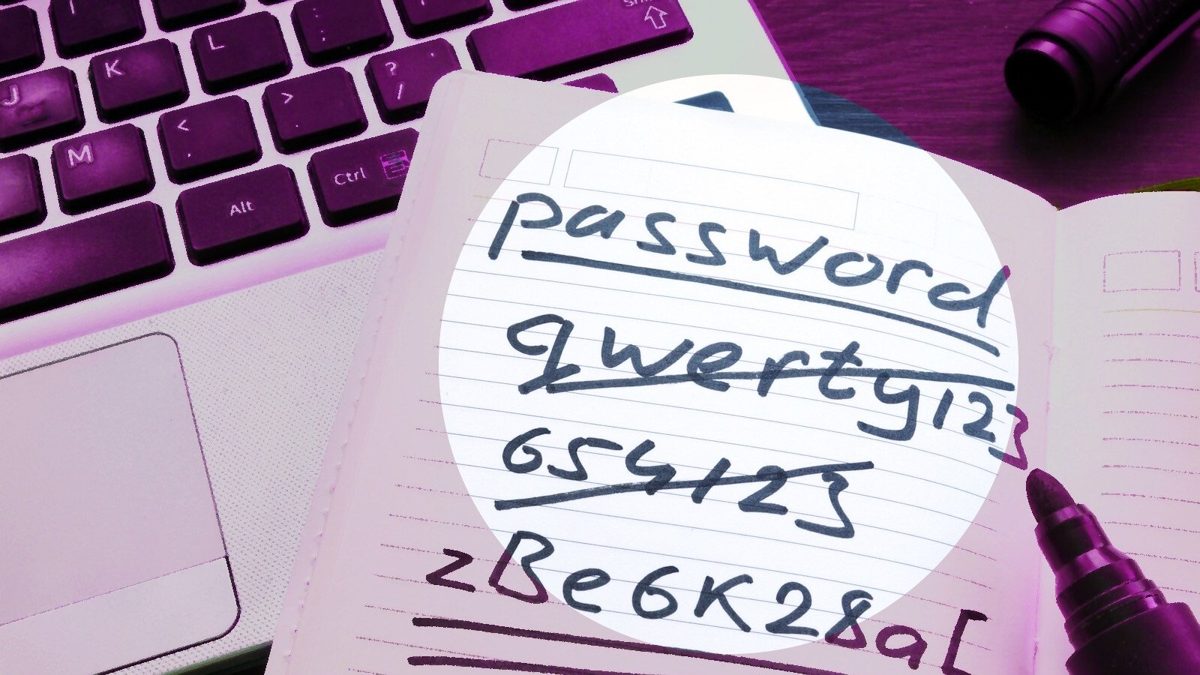 J K L : ; Shift
M < , > . ? /
Alt Ctrl
password
qwerty123
654123
zBe6K28a[